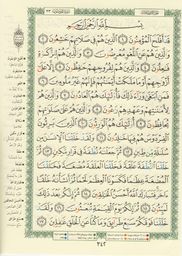 بِسْمِ ٱللَّهِ ٱلرَّحْمَٰنِ ٱلرَّحِيمِ
قَدْ أَفْلَحَ ٱلْمُؤْمِنُونَ ١ ٱلَّذِينَ هُمْ فِى صَلَاتِهِمْ خَٰشِعُونَ ٢
وَٱلَّذِينَ هُمْ عَنِ ٱللَّغْوِ مُعْرِضُونَ ٣ وَٱلَّذِينَ هُمْ لِلزَّكَوٰةِ
فَٰعِلُونَ ٤ وَٱلَّذِينَ هُمْ لِفُرُوجِهِمْ حَٰفِظُونَ ٥ إِلَّا عَلَىٰٓ
أَزْوَٰجِهِمْ أَوْ مَا مَلَكَتْ أَيْمَٰنُهُمْ فَإِنَّهُمْ غَيْرُ مَلُومِينَ ٦
فَمَنِ ٱبْتَغَىٰ وَرَآءَ ذَٰلِكَ فَأُو۟لَٰٓئِكَ هُمُ ٱلْعَادُونَ ٧ وَٱلَّذِينَ هُمْ
لِأَمَٰنَٰتِهِمْ وَعَهْدِهِمْ رَٰعُونَ ٨ وَٱلَّذِينَ هُمْ عَلَىٰ صَلَوَٰتِهِمْ
يُحَافِظُونَ ٩ أُو۟لَٰٓئِكَ هُمُ ٱلْوَٰرِثُونَ ١٠ ٱلَّذِينَ يَرِثُونَ
ٱلْفِرْدَوْسَ هُمْ فِيهَا خَٰلِدُونَ ١١ وَلَقَدْ خَلَقْنَا ٱلْإِنسَٰنَ
مِن سُلَٰلَةٍ مِّن طِينٍ ١٢ ثُمَّ جَعَلْنَٰهُ نُطْفَةً فِى قَرَارٍ مَّكِينٍ ١٣
ثُمَّ خَلَقْنَا ٱلنُّطْفَةَ عَلَقَةً فَخَلَقْنَا ٱلْعَلَقَةَ مُضْغَةً فَخَلَقْنَا
ٱلْمُضْغَةَ عِظَٰمًا فَكَسَوْنَا ٱلْعِظَٰمَ لَحْمًا ثُمَّ أَنشَأْنَٰهُ خَلْقًا
ءَاخَرَ فَتَبَارَكَ ٱللَّهُ أَحْسَنُ ٱلْخَٰلِقِينَ ١٤ ثُمَّ إِنَّكُم بَعْدَ ذَٰلِكَ
لَمَيِّتُونَ ١٥ ثُمَّ إِنَّكُمْ يَوْمَ ٱلْقِيَٰمَةِ تُبْعَثُونَ ١٦ وَلَقَدْ
خَلَقْنَا فَوْقَكُمْ سَبْعَ طَرَآئِقَ وَمَا كُنَّا عَنِ ٱلْخَلْقِ غَٰفِلِينَ ١٧
٣٤٢